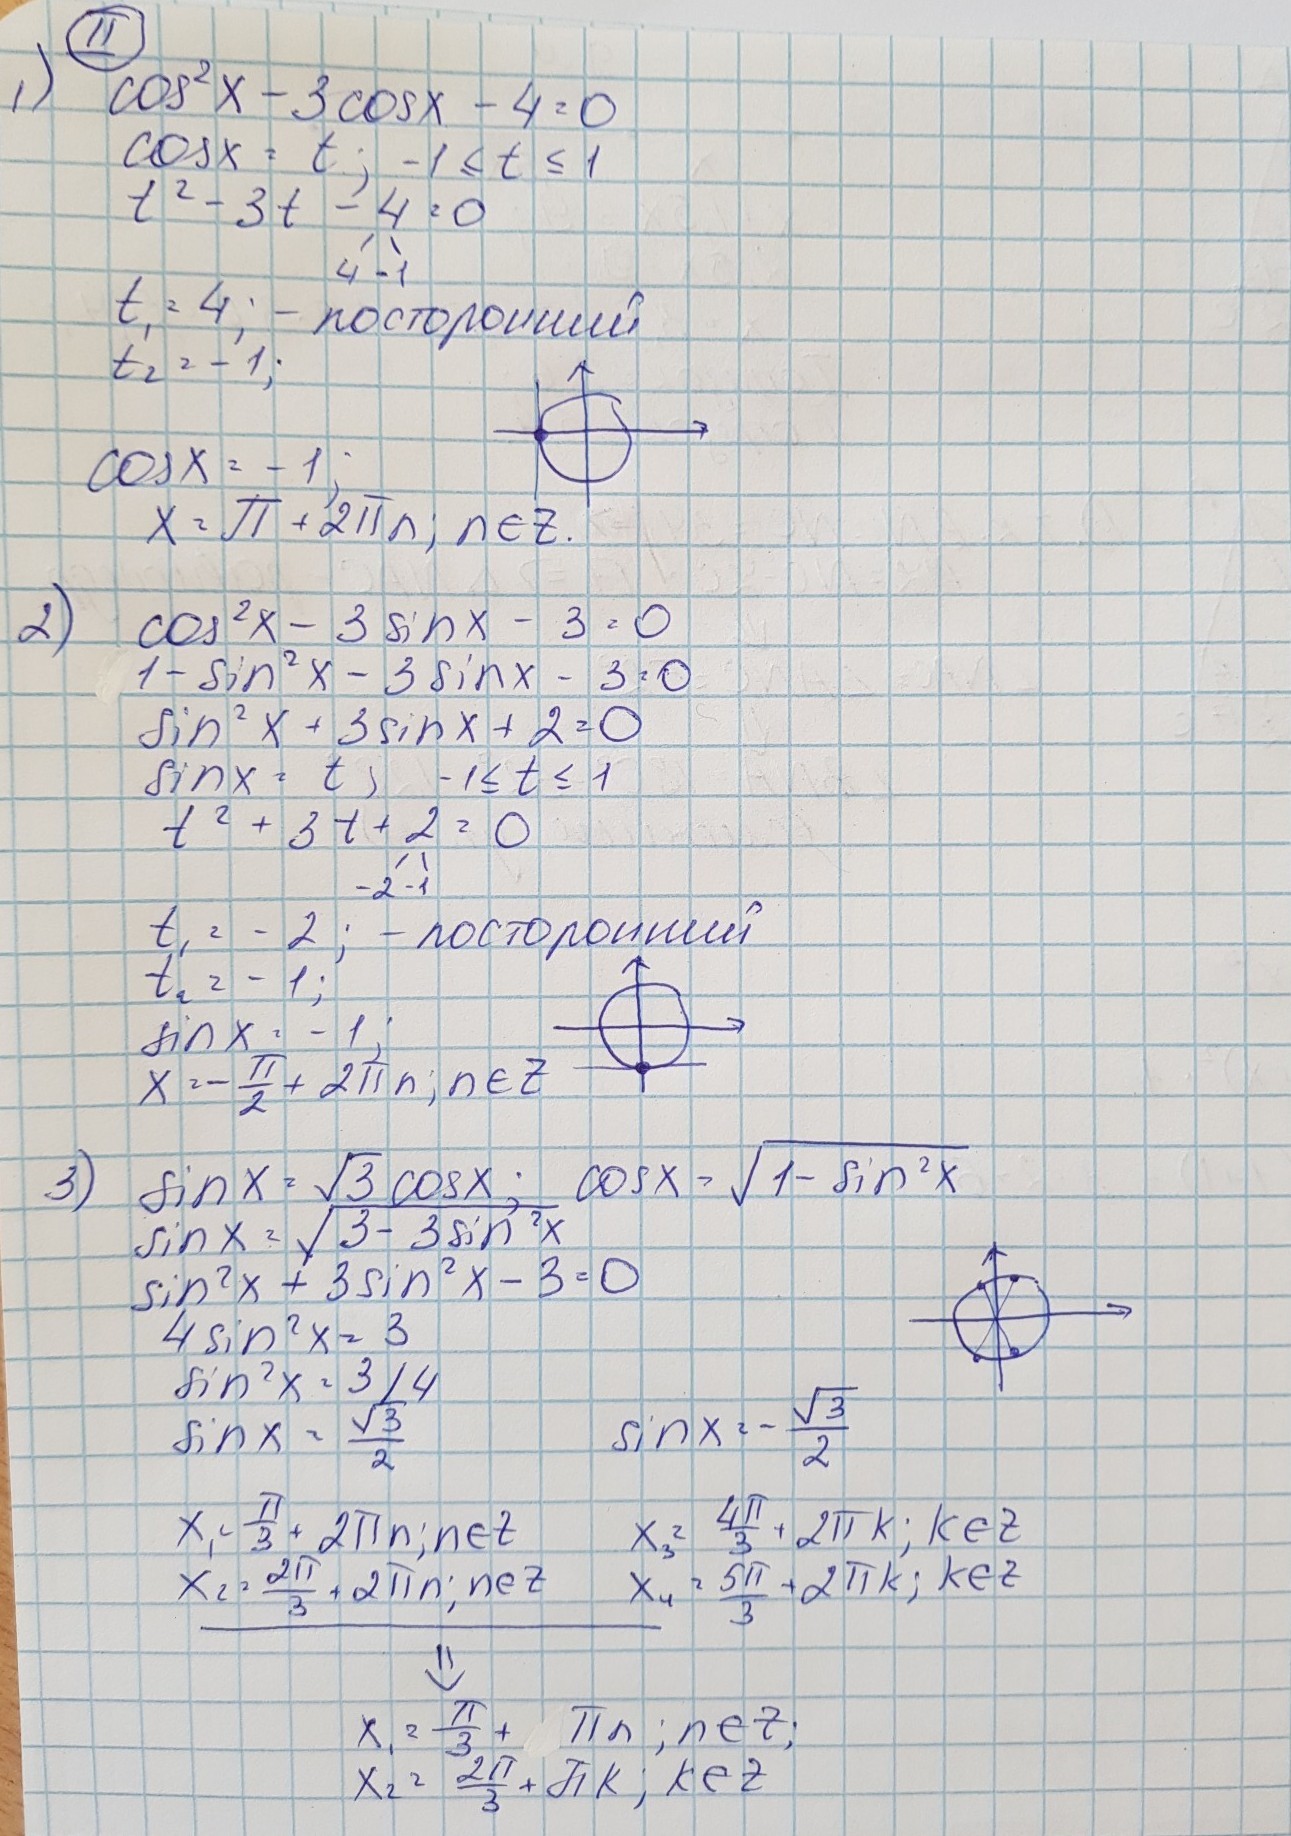 II
1) cos²x - 3cosx - 4 = 0
cosx = t; -1 ≤ t ≤ 1
t² - 3t - 4 = 0
4 -1
t₁ = 4; - посторонний
t₂ = -1;
cosx = -1;
x = π + 2πn; n∈Z.
2) cos²x - 3sinx - 3 = 0
1 - sin²x - 3sinx - 3 = 0
sin²x + 3sinx + 2 = 0
sinx = t; -1 ≤ t ≤ 1
t² + 3t + 2 = 0
-2 -1
t₁ = -2; - посторонний
t₂ = -1;
sinx = -1;
x = -π/2 + 2πn; n∈Z
3) sinx = √3 cosx; cosx = √(1 - sin²x)
sinx = √(3 - 3sin²x)
sin²x + 3sin²x - 3 = 0
4sin²x = 3
sin²x = 3/4
sinx = √3/2 sinx = -√3/2
x₁ = π/3 + 2πn; n∈Z x₃ = 4π/3 + 2πk; k∈Z
x₂ = 2π/3 + 2πn; n∈Z x₄ = 5π/3 + 2πk; k∈Z
⇓
x₁ = π/3 + πn; n∈Z;
x₂ = 2π/3 + πk; k∈Z